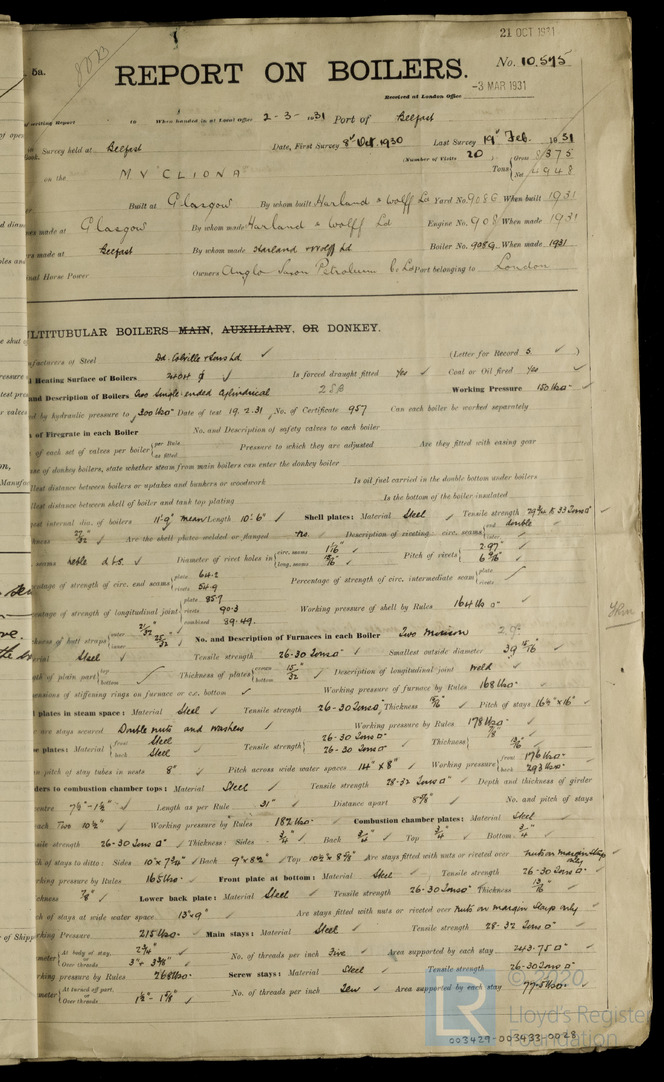 21 OCT 1931
5a.
8023
REPORT ON BOILERS.
No. 10,575
-3 MAR 1931
Received at London Office
of writing Report to When handed in at Local Office 2-3-1931 Port of Belfast
Survey held at Belfast Date, First Survey 8th Oct. 1930 Last Survey 19th Feb. 1931
(Number of Visits 20)
on the MV CLIONA
Tons Gross 8375
Net 4948
Built at Glasgow By whom built Harland & Wolff Ld Yard No. 908G When built 1931
made at Glasgow By whom made Harland & Wolff Ld Engine No. 908 When made 1931
made at Belfast By whom made Harland & Wolff Ld Boiler No. 908G When made 1931
Horse Power Owners Anglo Saxon Petroleum C. Ld Port belonging to London
MULTITUBULAR BOILERS MAIN, AUXILIARY, OR DONKEY.
of Steel Dd. Colville & Sons Ld ✓ (Letter for Record S ✓)
Heating Surface of Boilers ✓ Is forced draught fitted yes ✓ Coal or Oil fired yes ✓
and Description of Boilers Two Single ended Cylindrical 2SB Working Pressure 150 lbs □"
by hydraulic pressure to 300 lbs □" Date of test 19.2.31 No. of Certificate 957 Can each boiler be worked separately
of Firegrate in each Boiler No. and Description of safety valves to each boiler
of each set of valves per boiler {per Rule as fitted Pressure to which they are adjusted Are they fitted with easing gear
of donkey boilers, state whether steam from main boilers can enter the donkey boiler
distance between boilers or uptakes and bunkers or woodwork Is oil fuel carried in the double bottom under boilers
distance between shell of boiler and tank top plating Is the bottom of the boiler insulated
internal dia. of boilers 11'-9" mean Length 10'-6" ✓ Shell plates: Material Steel ✓ Tensile strength ✓
27/32" ✓ Are the shell plates welded or flanged no ✓ Description of riveting: circ. seams {end double
seams ✓ Diameter of rivet holes in {circ. seams 1 1/16" long. seams Pitch of rivets {2.97" ✓
percentage of strength of circ. end seams {plate 64.2 rivets 54.9 Percentage of strength of circ. intermediate seam {plate rivets
percentage of strength of longitudinal joint {plate 85.7 rivets 90.3 combined 89.49 Working pressure of shell by Rules 164 lbs □"
thickness of butt straps {outer inner 25/32" No. and Description of Furnaces in each Boiler Two Morison
Steel ✓ Tensile strength 26-30 Tons □" Smallest outside diameter 39 15/16"
of plain part {top bottom Thickness of plates {crown bottom 15/32" Description of longitudinal joint Weld ✓
dimensions of stiffening rings on furnace or c.c. bottom ✓ Working pressure of furnace by Rules 168 lbs □"
plates in steam space: Material Steel ✓ Tensile strength 26-30 Tons □" Thickness Pitch of stays 16½" x 16" ✓
are stays secured Double nuts and washers Working pressure by Rules 178 lbs □"
plates: Material {front Steel back Steel Tensile strength {26-30 Tons □" 26-30 Tons □" Thickness {7/8" 13/16"
pitch of stay tubes in nests 8" ✓ Pitch across wide water spaces 14" x 8" ✓ Working pressure {front 176 lbs □" back 293 lbs □"
girders to combustion chamber tops: Material Steel ✓ Tensile strength 28-32 Tons □" Depth and thickness of girder
centre 7½"-1½" ✓ Length as per Rule 31" ✓ Distance apart ✓ No. and pitch of stays
each Two 10½" ✓ Working pressure by Rules 182 lbs □" Combustion chamber plates: Material Steel ✓
tensile strength 26-30 Tons □" ✓ Thickness: Sides ¾" ✓ Back ¾" ✓ Top ¾" ✓ Bottom ¾"
pitch of stays to ditto: Sides 10" x 7¾" ✓ Back 9" x 8½" ✓ Top Are stays fitted with nuts or riveted over nuts on margin stays only
working pressure by Rules 165 lbs □" Front plate at bottom: Material Steel ✓ Tensile strength 26-30 Tons □" ✓
thickness 7/8" ✓ Lower back plate: Material Steel ✓ Tensile strength 26-30 Tons □" Thickness 13/16" ✓
pitch of stays at wide water space 13" x 9" ✓ Are stays fitted with nuts or riveted over nuts on margin stays only
Working Pressure 215 lbs □" Main stays: Material Steel ✓ Tensile strength 28-32 Tons □" ✓
diameter {At body of stay 2¾" Over threads No. of threads per inch Five ✓ Area supported by each stay 243.75 □" ✓
working pressure by Rules 268 lbs □" Screw stays: Material Steel ✓ Tensile strength 26-30 Tons □" ✓
diameter {At turned off part Over threads ✓ No. of threads per inch Ten ✓ Area supported by each stay 77.5 □" ✓
LR
© 2020
Lloyd's Register
Foundation
003429-003433-0028